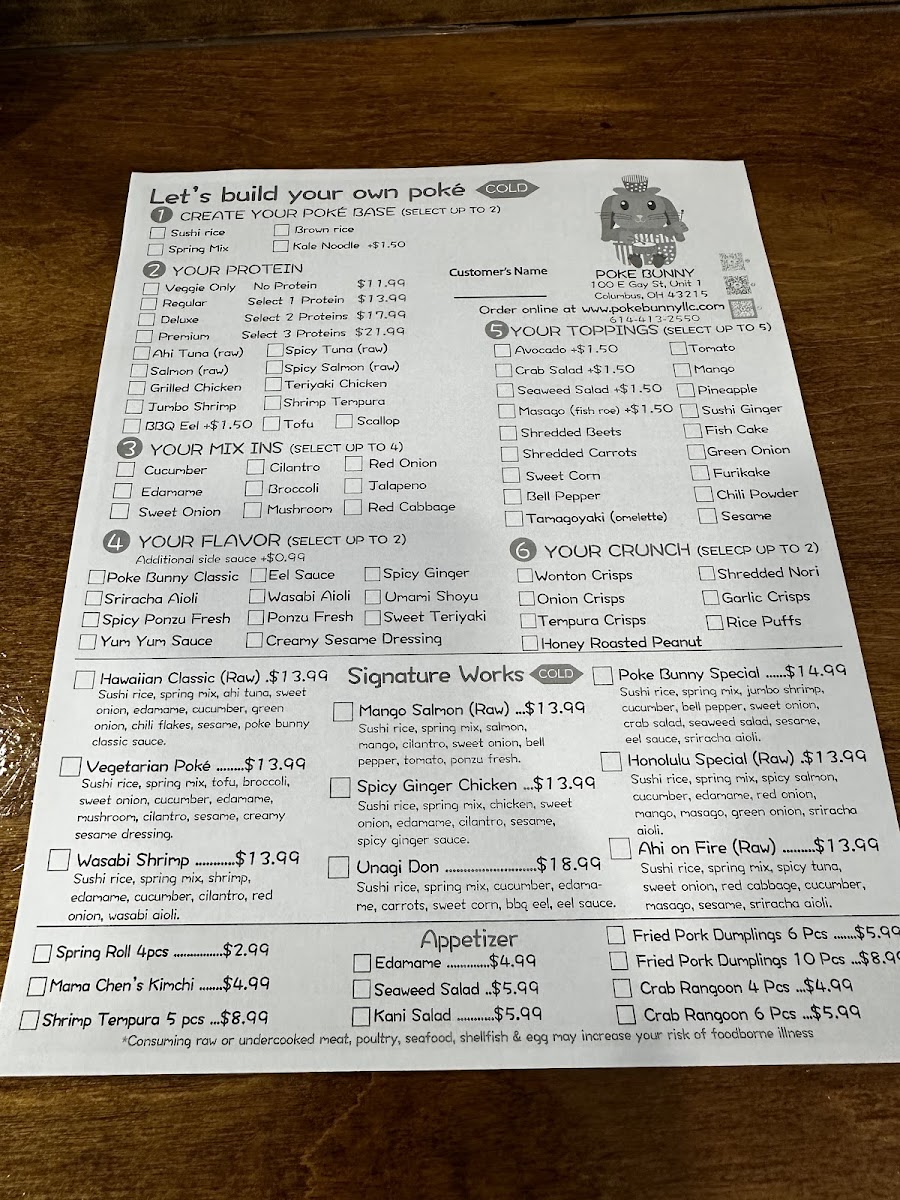 Let's build your own poké COLD
1 CREATE YOUR POKÉ BASE (SELECT UP TO 2)
Sushi rice Brown rice
Spring Mix Kale Noodle +$1.50
2 YOUR PROTEIN
Veggie Only No Protein $11.99
Regular Select 1 Protein $13.99
Deluxe Select 2 Proteins $17.99
Premium Select 3 Proteins $21.99
Ahi Tuna (raw) Spicy Tuna (raw)
Salmon (raw) Spicy Salmon (raw)
Grilled Chicken Teriyaki Chicken
Jumbo Shrimp Shrimp Tempura
BBQ Eel +$1.50 Tofu Scallop
3 YOUR MIX INS (SELECT UP TO 4)
Cucumber Cilantro Red Onion
Edamame Broccoli Jalapeno
Sweet Onion Mushroom Red Cabbage
4 YOUR FLAVOR (SELECT UP TO 2)
Additional side sauce +$0.99
Poke Bunny Classic Eel Sauce Spicy Ginger
Sriracha Aioli Wasabi Aioli Umami Shoyu
Spicy Ponzu Fresh Ponzu Fresh Sweet Teriyaki
Yum Yum Sauce Creamy Sesame Dressing
Customer's Name
POKE BUNNY
100 E Gay St, Unit 1
Columbus, OH 43215
Order online at www.pokebunnyllc.com
614-413-2550
5 YOUR TOPPINGS (SELECT UP TO 5)
Avocado +$1.50 Tomato
Crab Salad +$1.50 Mango
Seaweed Salad +$1.50 Pineapple
Masago (fish roe) +$1.50 Sushi Ginger
Shredded Beets Fish Cake
Shredded Carrots Green Onion
Sweet Corn Furikake
Bell Pepper Chili Powder
Tamagoyaki (omelette) Sesame
6 YOUR CRUNCH (SELECP UP TO 2)
Wonton Crisps Shredded Nori
Onion Crisps Garlic Crisps
Tempura Crisps Rice Puffs
Honey Roasted Peanut
Signature Works COLD
Hawaiian Classic (Raw) .$13.99
Sushi rice, spring mix, ahi tuna, sweet
onion, edamame, cucumber, green
onion, chili flakes, sesame, poke bunny
classic sauce.
Vegetarian Poké ........$13.99
Sushi rice, spring mix, tofu, broccoli,
sweet onion, cucumber, edamame,
mushroom, cilantro, sesame, creamy
sesame dressing.
Wasabi Shrimp ...........$13.99
Sushi rice, spring mix, shrimp,
edamame, cucumber, cilantro, red
onion, wasabi aioli.
Mango Salmon (Raw) ...$13.99
Sushi rice, spring mix, salmon,
mango, cilantro, sweet onion, bell
pepper, tomato, ponzu fresh.
Spicy Ginger Chicken ...$13.99
Sushi rice, spring mix, chicken, sweet
onion, edamame, cilantro, sesame,
spicy ginger sauce.
Unagi Don .........................$18.99
Sushi rice, spring mix, cucumber, edama-
me, carrots, sweet corn, bbq eel, eel sauce.
Poke Bunny Special ......$14.99
Sushi rice, spring mix, jumbo shrimp,
cucumber, bell pepper, sweet onion,
crab salad, seaweed salad, sesame,
eel sauce, sriracha aioli.
Honolulu Special (Raw) .$13.99
Sushi rice, spring mix, spicy salmon,
cucumber, edamame, red onion,
mango, masago, green onion, sriracha
aioli.
Ahi on Fire (Raw) .........$13.99
Sushi rice, spring mix, spicy tuna,
sweet onion, red cabbage, cucumber,
masago, sesame, sriracha aioli.
Appetizer
Spring Roll 4pcs ..............$2.99
Mama Chen's Kimchi .......$4.99
Shrimp Tempura 5 pcs ...$8.99
Edamame ............$4.99
Seaweed Salad ..$5.99
Kani Salad ..........$5.99
Fried Pork Dumplings 6 Pcs .......$5.99
Fried Pork Dumplings 10 Pcs ...$8.99
Crab Rangoon 4 Pcs ...$4.99
Crab Rangoon 6 Pcs ...$5.99
*Consuming raw or undercooked meat, poultry, seafood, shellfish & egg may increase your risk of foodborne illness